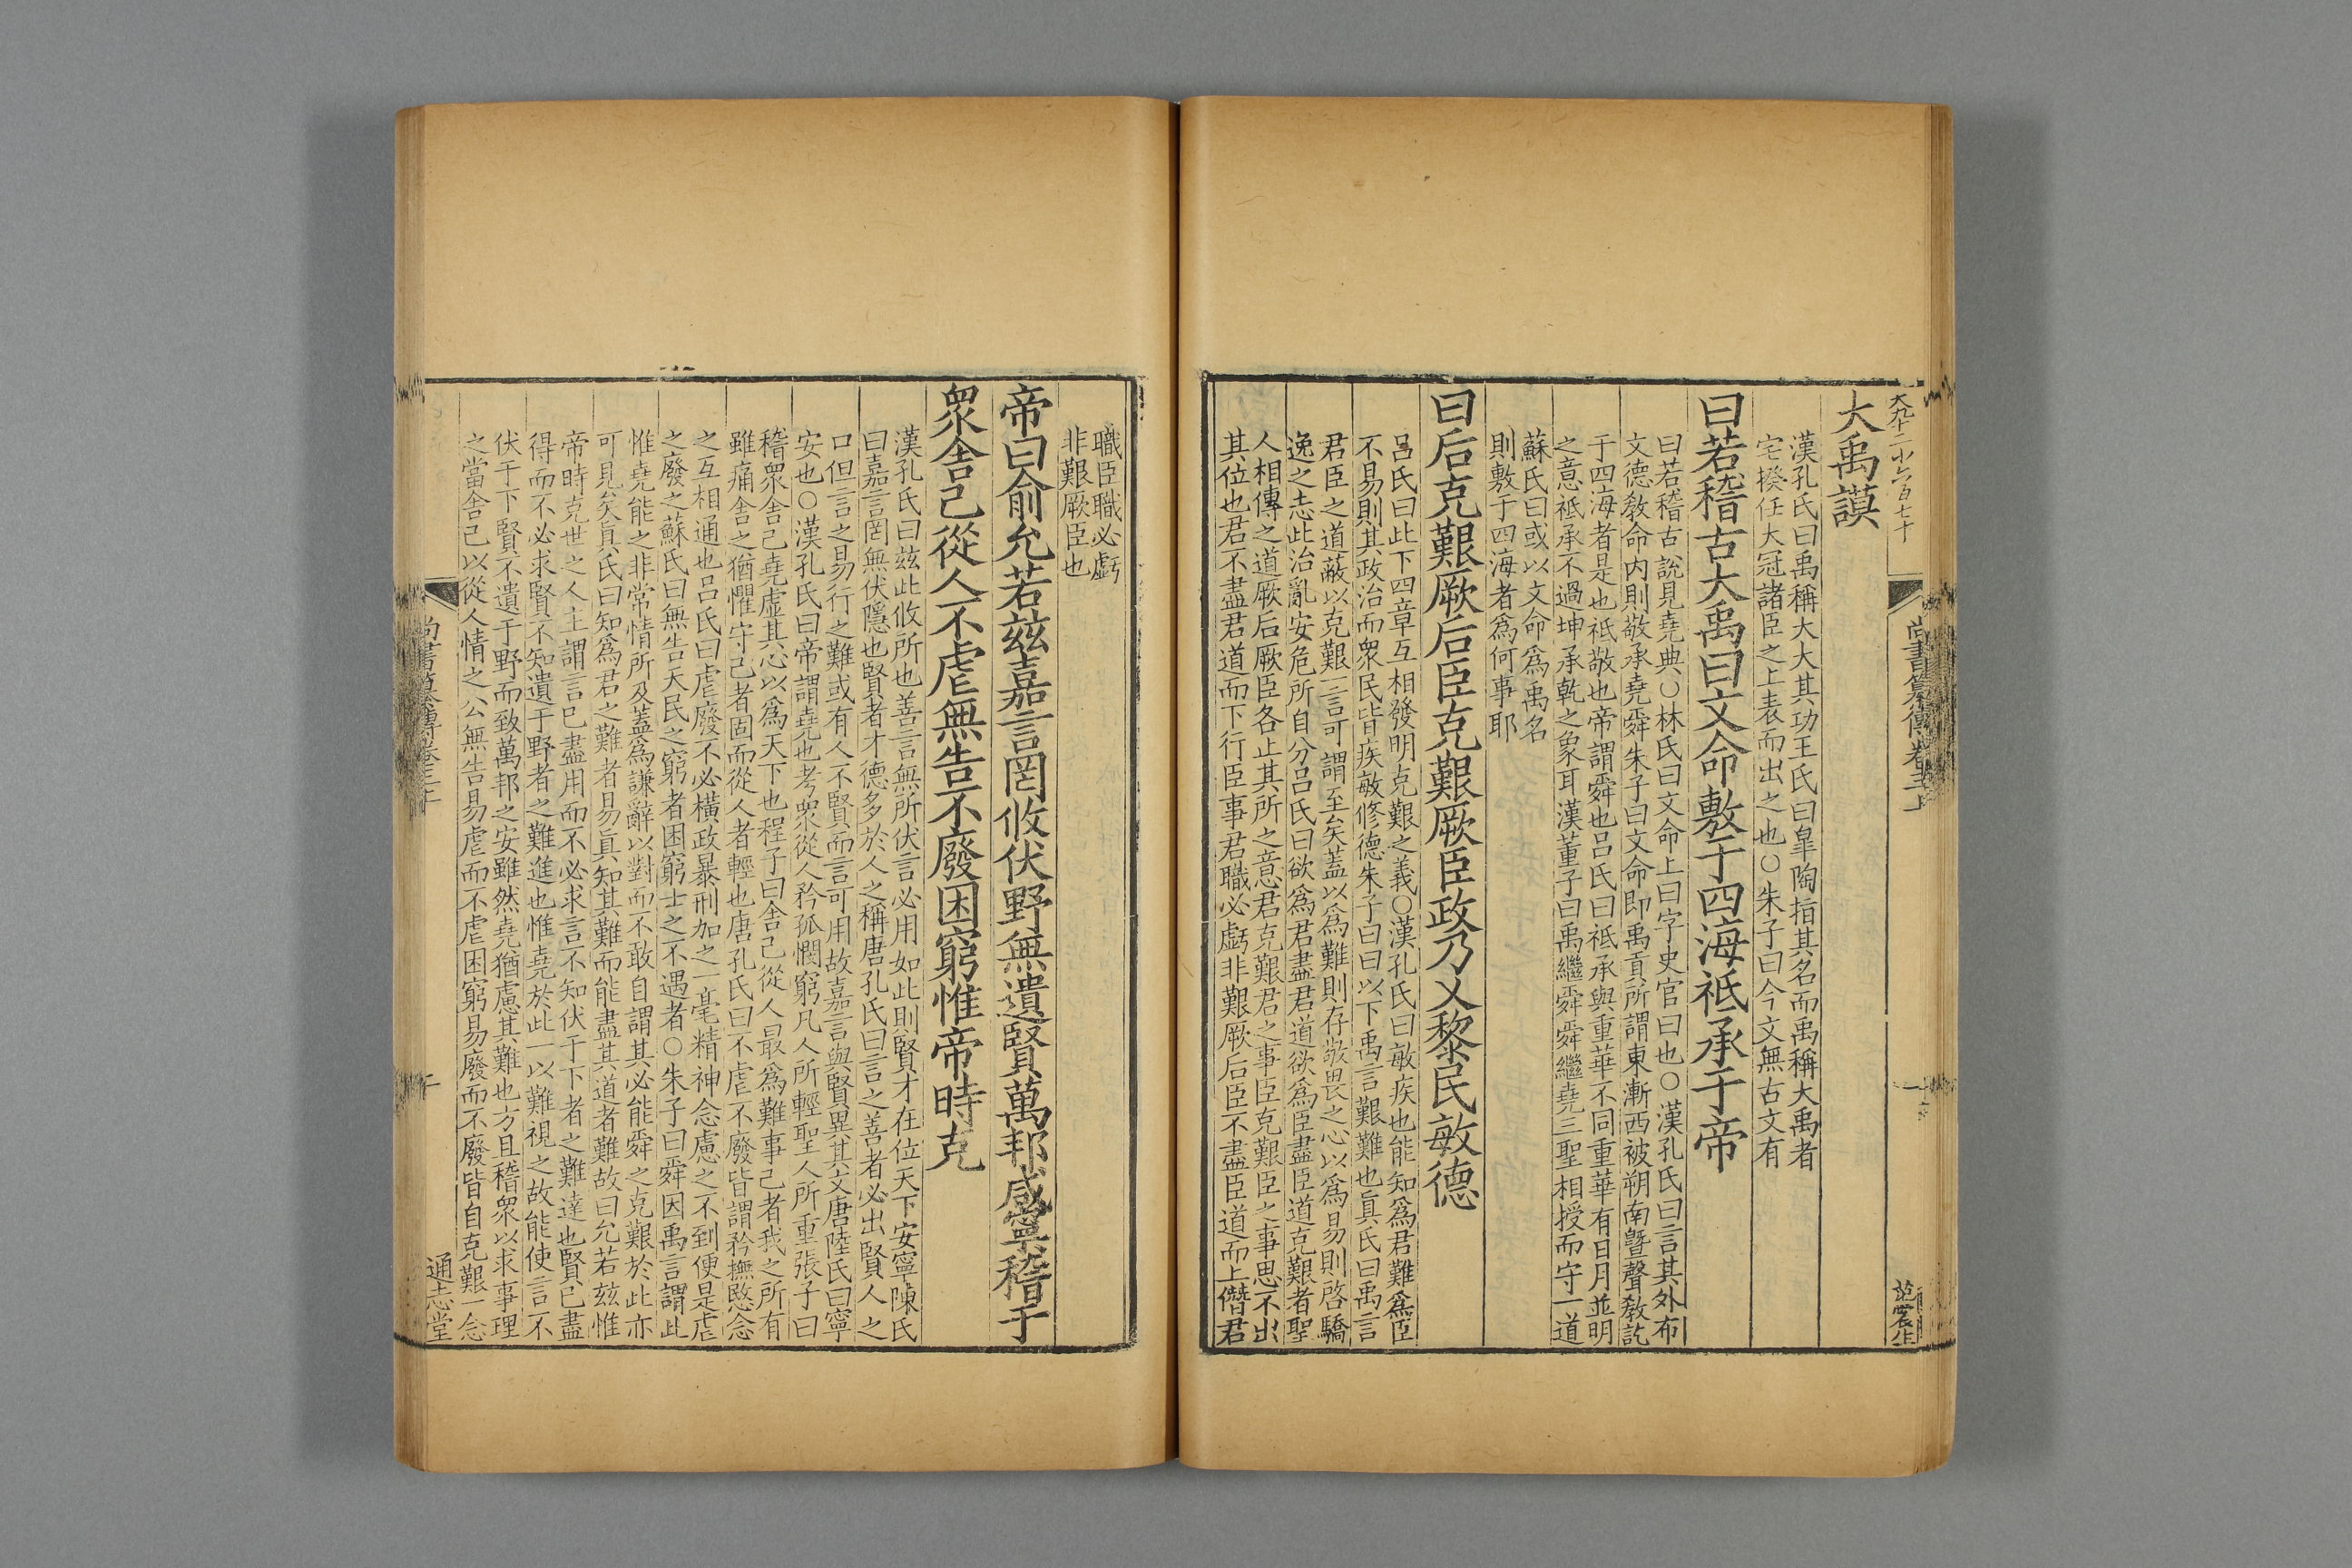 大禹謨
漢孔氏曰禹稱大大其功王氏曰皐陶指其名而禹稱大禹者
宅揆任大冠諸臣之上表而出之也○朱子曰今文無古文有
曰若稽古大禹曰文命敷于四海祗承于帝
曰若稽古說見堯典○林氏曰文命上曰字史官曰也○漢孔氏曰言其外布
文德敎命內則敬承堯舜朱子曰文命即禹貢所謂東漸西被朔南曁聲敎訖
于四海者是也祗敬也帝謂舜也呂氏曰祗承與重華不同重華有日月並明
之意祗承不過坤承乾之象耳漢董子曰禹繼舜舜繼堯三聖相授而守一道
蘇氏曰或以文命爲禹名
則敷于四海者爲何事耶
曰后克艱厥后臣克艱厥臣政乃乂黎民敏德
呂氏曰此下四章互相發明克艱之義○漢孔氏曰敏疾也能知爲君難爲臣
不易則其政治而衆民皆疾敏修德朱子曰曰以下禹言艱難也眞氏曰禹言
君臣之道蔽以克艱一言可謂至矣蓋以爲難則存敬畏之心以爲易則啓驕
逸之志此治亂安危所自分呂氏曰欲爲君盡君道欲爲臣盡臣道克艱者聖
人相傳之道厥后厥臣各止其所之意君克艱君之事臣克艱臣之事思不出
其位也君不盡君道而下行臣事君職必虧非艱厥后臣不盡臣道而上僭君
職臣職必虧
非艱厥臣也
帝曰俞允若玆嘉言罔攸伏野無遺賢萬邦咸寧稽于
衆舍己從人不虐無告不廢困窮惟帝時克
漢孔氏曰玆此攸所也善言無所伏言必用如此則賢才在位天下安寧陳氏
曰嘉言罔無伏隱也賢者才德多於人之稱唐孔氏曰言之善者必出賢人之
口但言之易行之難或有人不賢而言可用故嘉言與賢異其文唐陸氏曰寧
安也○漢孔氏曰帝謂堯也考衆從人矜孤愍窮凡人所輕聖人所重張子曰
稽衆舍己堯虛其心以爲天下也程子曰舍己從人最爲難事己者我之所有
雖痛舍之猶懼守己者固而從人者輕也唐孔氏曰不虐不廢皆謂矜撫愍念
之互相通也呂氏曰虐廢不必橫政暴刑加之一毫精神念慮之不到便是虐
之廢之蘇氏曰無告天民之窮者困窮士之不遇者○朱子曰舜因禹言謂此
惟堯能之非常情所及蓋爲謙辭以對而不敢自謂其必能舜之克艱於此亦
可見矣眞氏曰知爲君之難者易眞知其難而能盡其道者難故曰允若玆惟
帝時克世之人主謂言已盡用而不必求言不知伏于下者之難達也賢已盡
得而不必求賢不知遺于野者之難進也惟堯於此一以難視之故能使言不
伏于下賢不遺于野而致萬邦之安雖然堯猶慮其難也方且稽衆以求事理
之當舍己以從人情之公無告易虐而不虐困窮易廢而不廢皆自克艱一念
通志堂